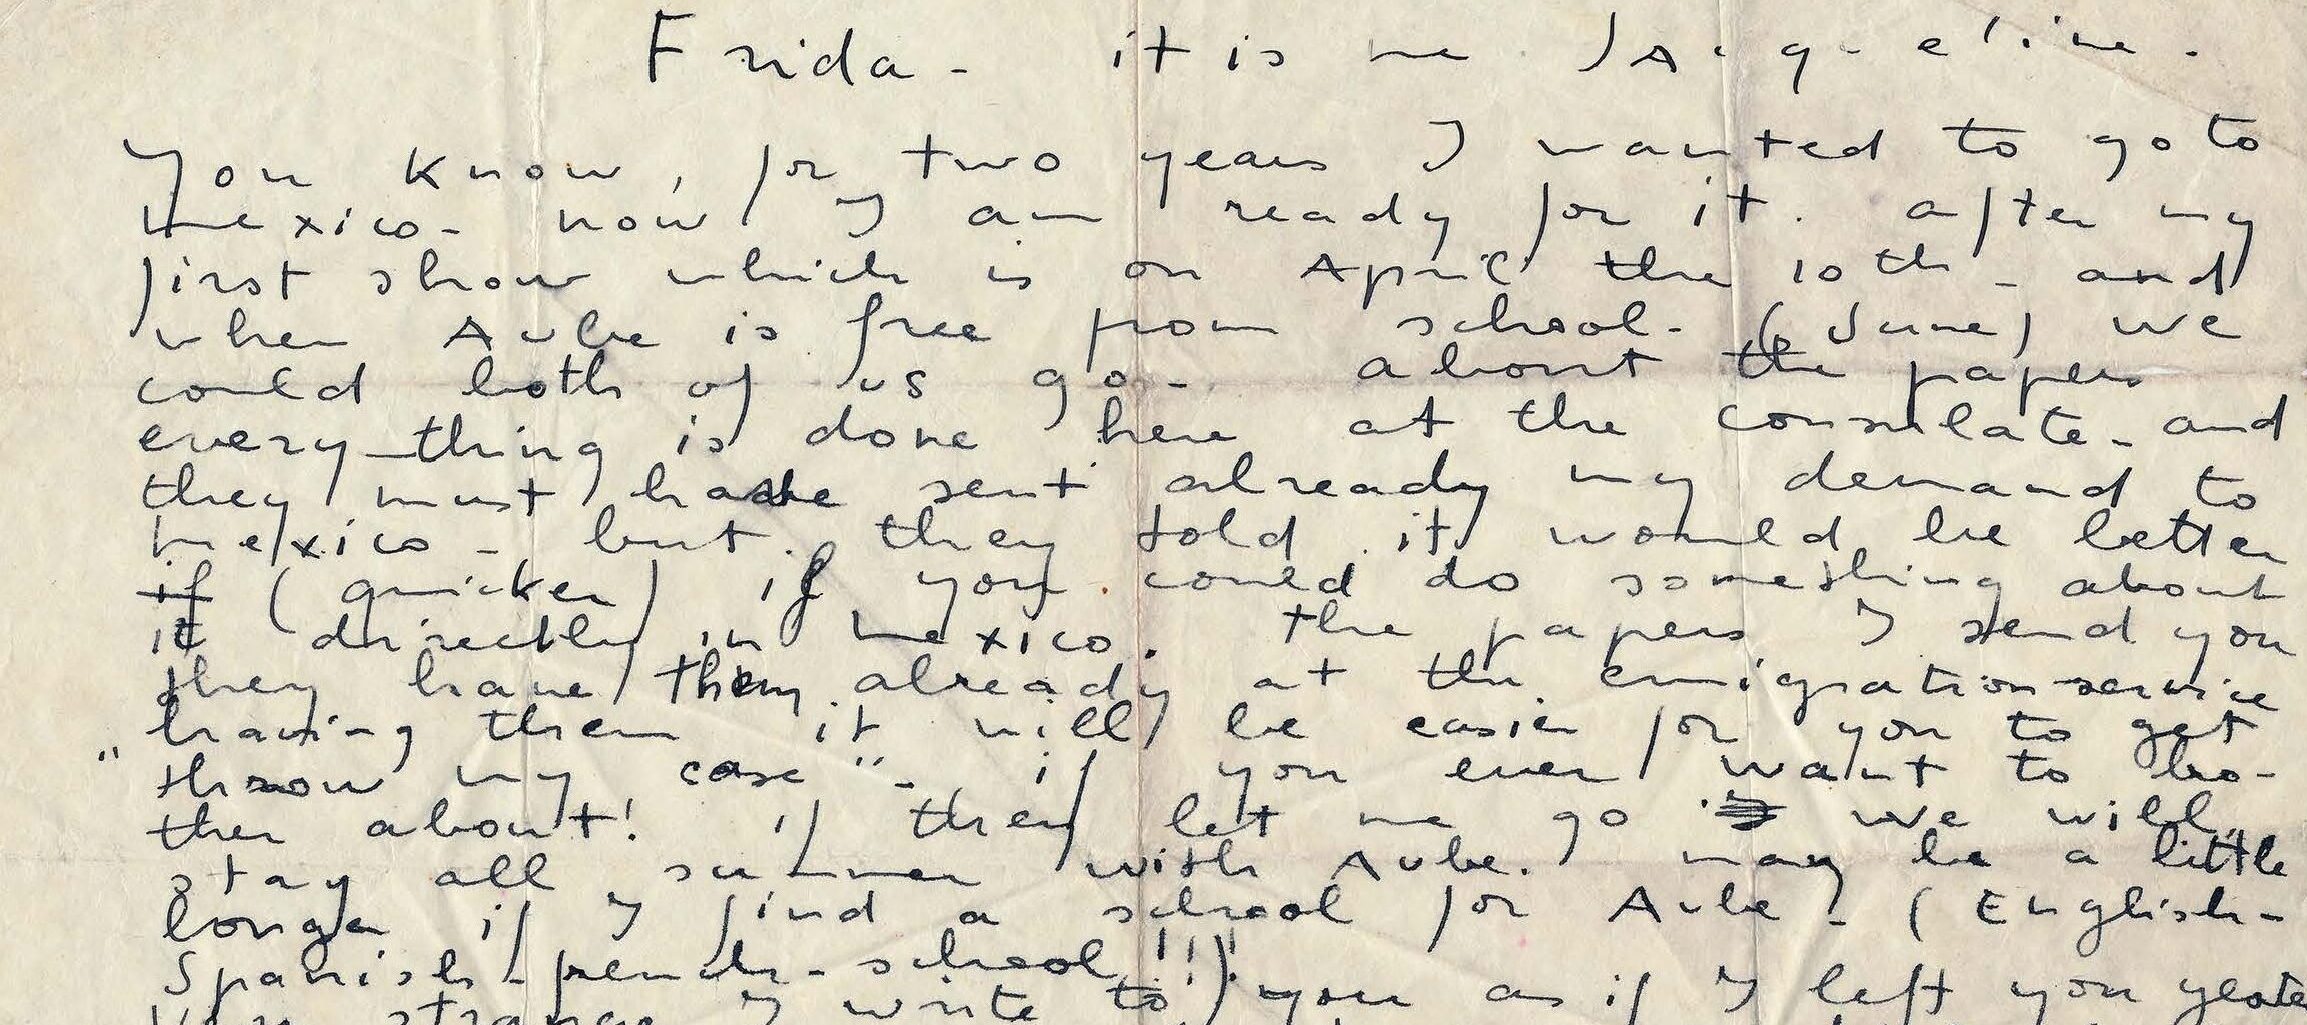 Frida - it is me Jacqueline -
You know, for two years I wanted to go to
mexico - now I am ready for it. after my
first show which is on April the 10th - and
when Aube is free from school - (June) we
could both of us go - about the papers
every-thing is done here at the consulate - and
they must have sent already my demand to
mexico - but they told it would be better
if (quicker) if you could do something about
it directly in mexico. the papers I send you
they have them already at the emigration-service
having them it will be easier for you to get
"throw my case" - if you ever want to bo-
ther about! if they let me go we will
stay all summer with Aube. may be a little
longer if I find a school for Aube - (English-
Spanish-french-school!!!)
very strange I write to you as if I left you